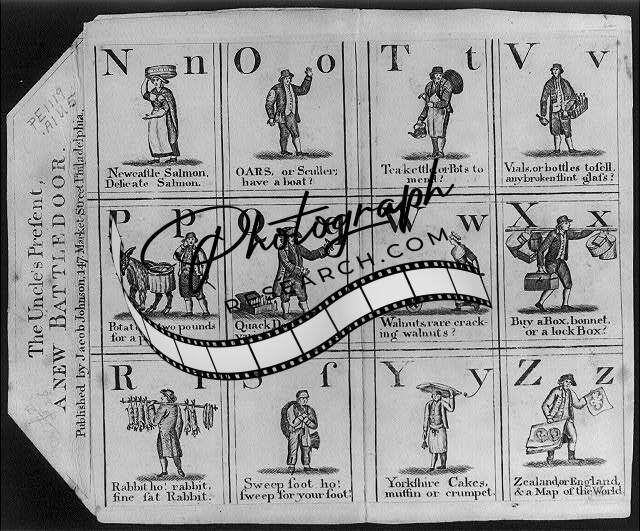 The Uncle's Preſent,
A NEW BATTLEDOOR.
Published by Jacob Johnson, 147 Market Street Philadelphia.
N n
Newcaſtle Salmon,
Delicate Salmon.
O o
OARS, or Sculler;
have a boat?
T t
Tea kettle, or Pots to
mend?
V v
Vials, or bottles to ſell,
any broken flint glaſs?
P p
two pounds
for a
Q
Quack
w
Walnuts, rare crack-
ing walnuts?
X x
Buy a Box, bonnet,
or a lock Box?
R r
Rabbit ho! rabbit,
fine fat Rabbit.
S ſ
Sweep ſoot ho!
ſweep for your ſoot?
Y y
Yorkſhire Cakes,
muffin or crumpet.
Z z
Zealand, or England,
& a Map of the World.
Photograph
RESEARCH.COM